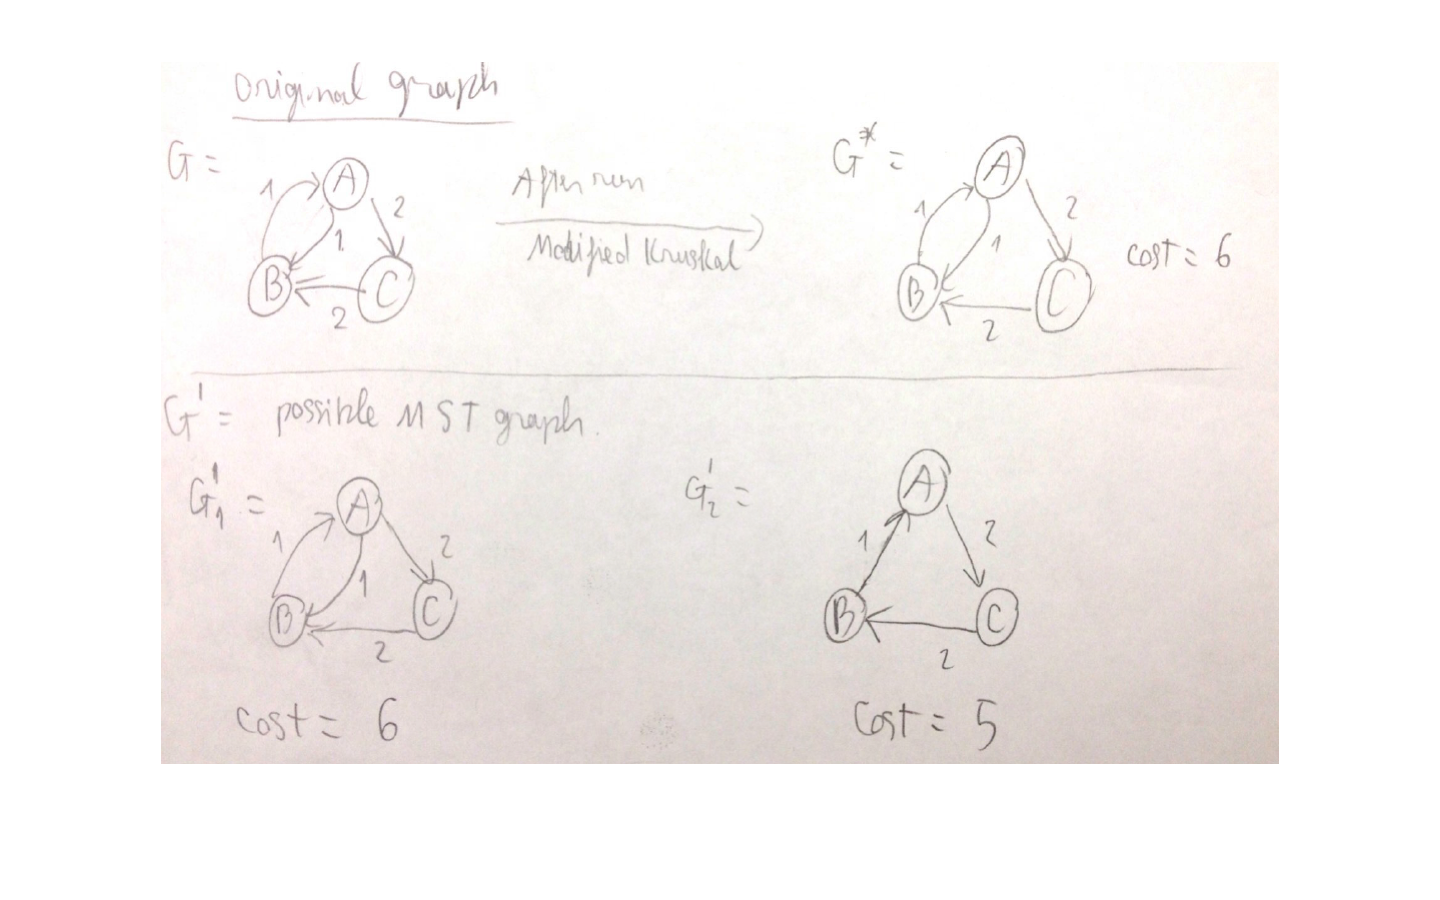 Original graph
G =
1
A
2
1
B
C
2
After run
Modified Kruskal
G* =
A
1
2
1
B
C
2
cost = 6
G' = possible MST graph.
G'1 =
A
1
2
1
B
C
2
cost = 6
G'2 =
A
1
2
B
C
2
Cost = 5